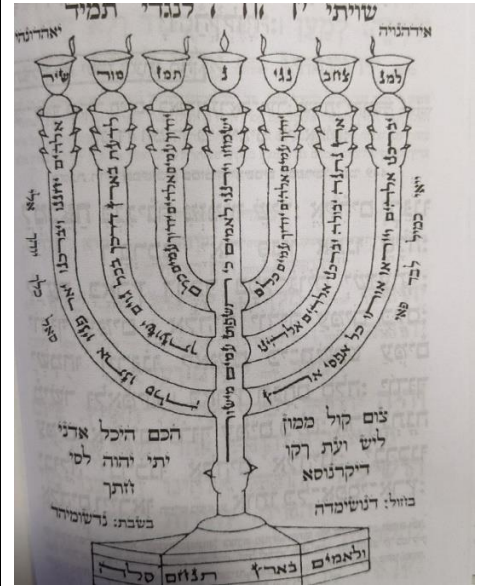 שויתי לנגדי תמיד
אידהנויה
יאהדונהי
למנ צחב נגי נ תמז מור שיר
אלהים יחננו ויברכנו יאר פניו אתנו סלה
לדעת בארץ דרכך בכל גוים ישועתך
יודוך עמים אלהים יודוך עמים כלם
ישמחו וירננו לאמים כי תשפט עמים מישור
ולאמים בארץ תנחם סלה
יודוך עמים אלהים יודוך עמים כלם
ארץ נתנה יבולה יברכנו אלהים אלהינו
יברכנו אלהים וייראו אותו כל אפסי ארץ
צום קול ממון
ליש ועת רקו
דיקרנוסא
בחול: דנושימדה
הכם היכל אדני
יתי יהוה לסי
בשבת: